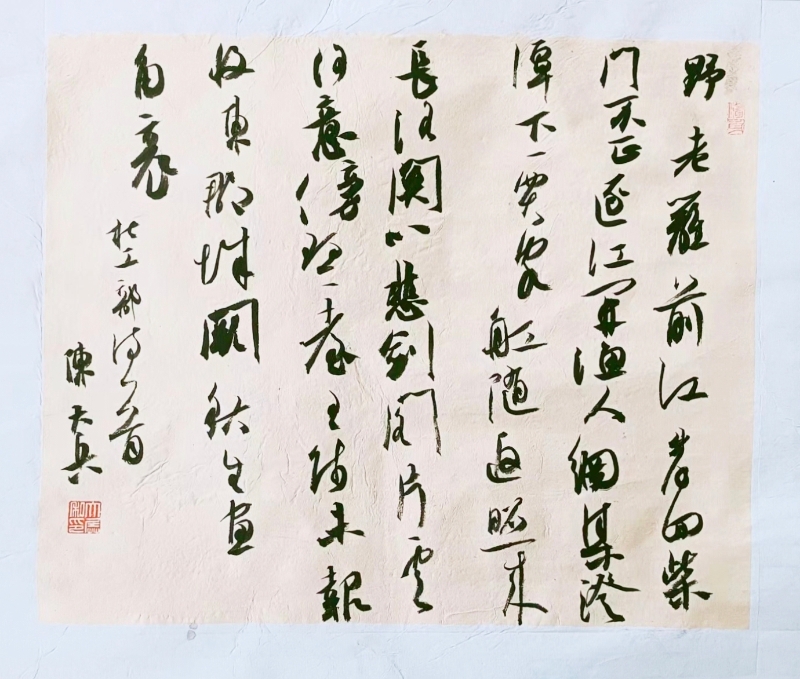 野老籬前江岸回柴
門不正逐江開漁人網集澄
潭下賈客舡随返照来
長路關心悲劍閣片雲
何意傍琴臺王師未報
收東郡城闕秋生畫
角哀
杜工部诗一首
陳大兵